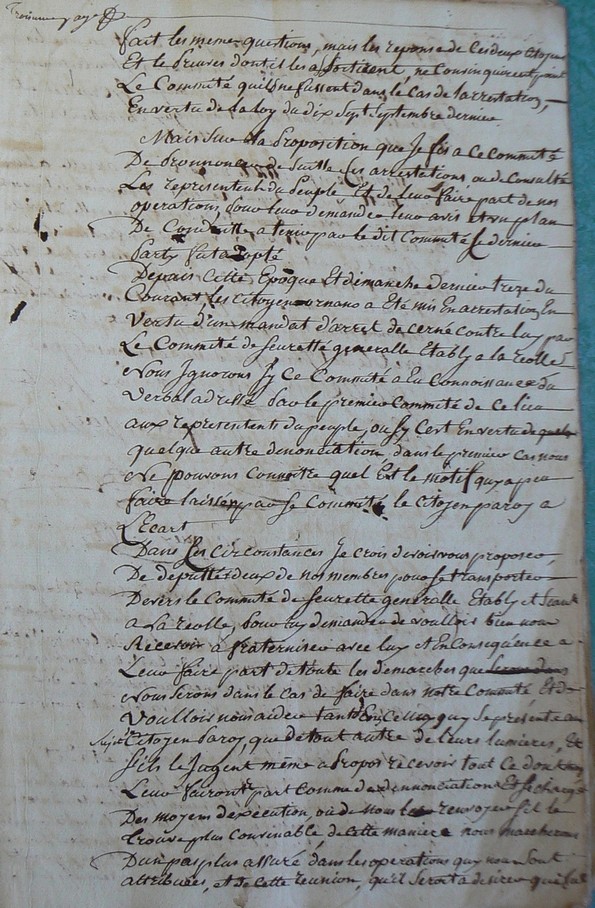 Troisieme page
fait les meme questions, mais les reponse de ces deux citoyens
Et le preuves dont il les assortirent, ne Consinquirent point
Le Committé quils ne fussent dans le Cas de larrestation,
En vertu de la loy du dix sept septembre dernier
Mais sur la proposition que Je fis a ce Committé
De prononcer de suitte ses arrestations ou de Consulté
Les representent du peuple Et de leur faire part de nos
operation, pour leur demander leur avis et un plan
De Conduitte a tenir par le dit Committé Le dernier
party fut adopté
Depuis Cette Epoque Et dimanche dernier treze du
Courant, les Citoyen ornano a Eté mis En arrestation En
Vertu d'un mandat d'arrest decerné contre luy par
Le Committé de seuretté generalle Etably a la reolle
Nous Ignorons sy Ce Committé a Eu Connoissance du
Verbal adressé par le premier Committé de Ce lieu
aux representents du peuple, ou sy Cest En vertu de quelq
quelque autre dinonciation, dans le premier cas nous
Ne pouvons Connoitre quel Est le motif quy a peu
faire laisser par se Committé le Citoyen paroy a
LEcart
Dans Ses Circonstances Je crois devoir vous proposer
De deputter deux de nos membres pour se transporter
Devers le Committé de seurette generalle Etably
a La reolle, pour luy demander de voulloir bien nous
Recevoir a fraterniser avec luy Et En Consequence a
Leur faire part de toute les demarches que
Nous Serons dans le cas de faire dans notre Committé Et de
Voulloir nous aider tant En Celluy quy se présente au
sujet Citoyen paroy, que de tout autre de leurs lumieres, Et
Sils le Jugent même a propos recevoir tout ce dont nous
Leur fairont part Comme dennonciation Et se charger
Des moyens d'execution, ou de nous les renvoyer sil le
trouve plus Convinable, de cette maniere nous marcherons
D'un pas plus assuré dans les operations quy nous sont
attribuées, et de cette reunion, qu'il seroit a desirer que